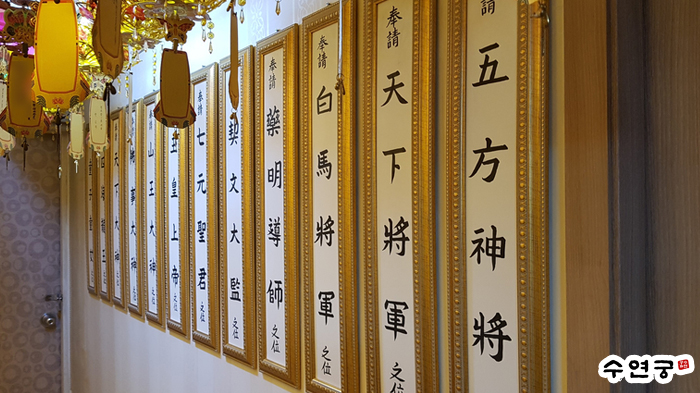 請 五方神將
奉請 天下將軍 之位
奉請 白馬將軍 之位
奉請 藥明導師 之位
契文大監 之位
奉請 七元聖君 之位
皇上帝 之位
奉請 山王大神 之位
事大神 之位
天下大神 之位
王
수연궁